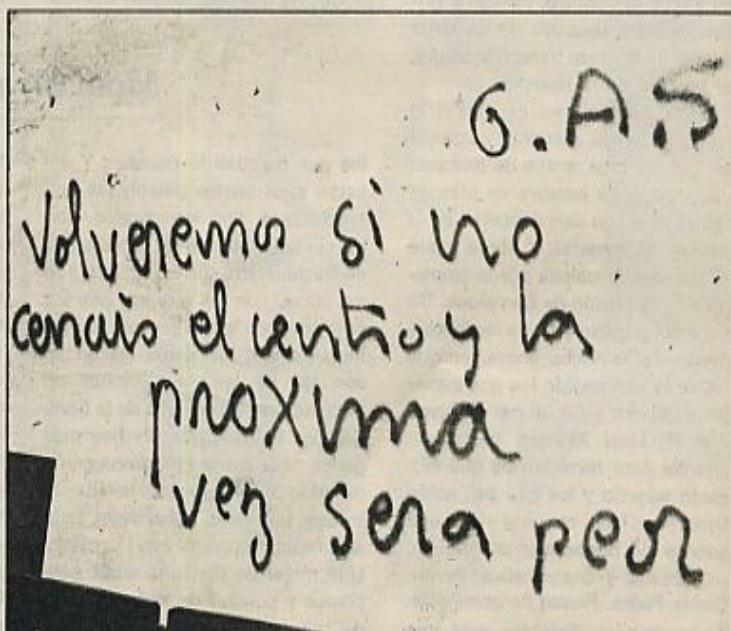 G.A.S
Volveremos si no
cerrais el centro y la
proxima
vez sera peor